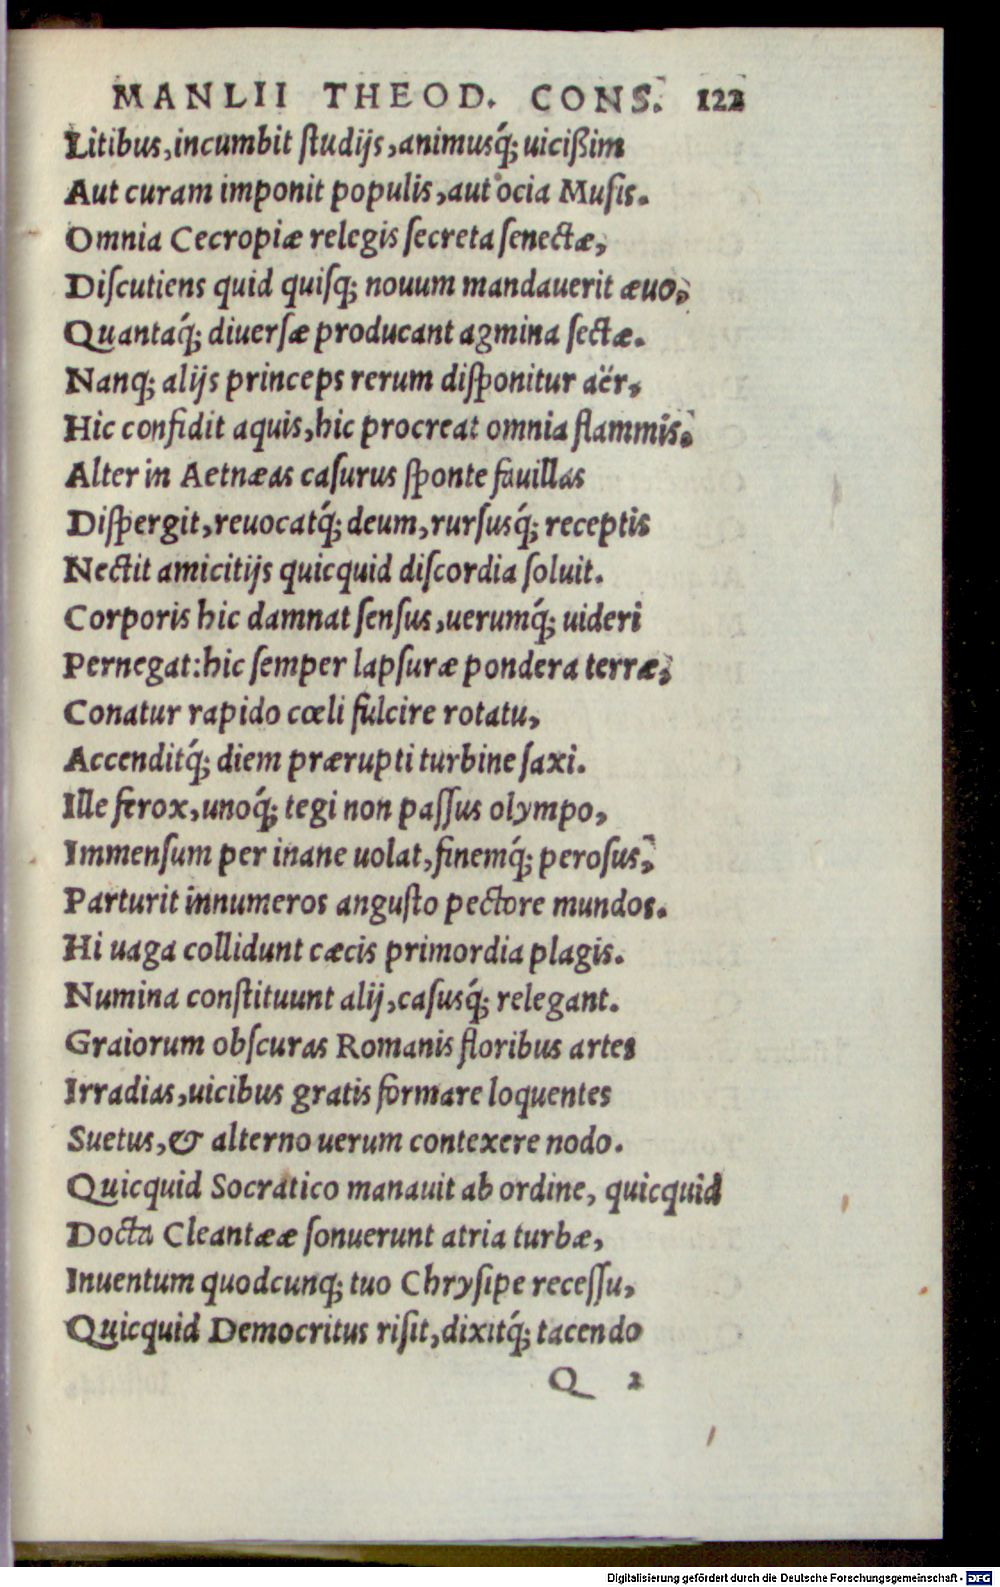 MANLII THEOD. CONS. 122
Litibus, incumbit ſtudijs, animusq́; uicißim
Aut curam imponit populis, aut ocia Muſis.
Omnia Cecropiæ relegis ſecreta ſenectæ,
Diſcutiens quid quiſq; nouum mandauerit æuo,
Quantaq́; diuerſæ producant agmina ſectæ.
Nanq; alijs princeps rerum diſponitur aër,
Hic confidit aquis, hic procreat omnia flammis.
Alter in Aetnæas caſurus ſponte fauillas
Diſpergit, reuocatq́; deum, rurſusq́; receptis
Nectit amicitijs quicquid diſcordia ſoluit.
Corporis hic damnat ſenſus, uerumq́; uideri
Pernegat: hic ſemper lapſuræ pondera terræ,
Conatur rapido cœli fulcire rotatu,
Accenditq́; diem prærupti turbine ſaxi.
Ille ferox, unoq́; tegi non paſſus olympo,
Immenſum per inane uolat, finemq́; peroſus,
Parturit innumeros anguſto pectore mundos.
Hi uaga collidunt cæcis primordia plagis.
Numina conſtituunt alij, caſusq́; relegant.
Graiorum obſcuras Romanis floribus artes
Irradias, uicibus gratis formare loquentes
Suetus, & alterno uerum contexere nodo.
Quicquid Socratico manauit ab ordine, quicquid
Docta Cleantææ ſonuerunt atria turbæ,
Inuentum quodcunq; tuo Chryſipe receſſu,
Quicquid Democritus riſit, dixitq́; tacendo
Q 2
Digitalisierung gefördert durch die Deutsche Forschungsgemeinschaft - DFG